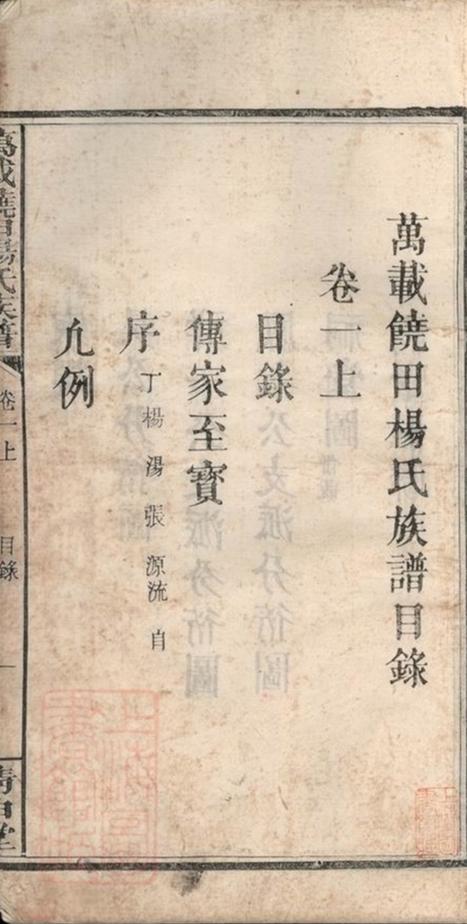 萬載饒田楊氏族譜目錄
卷一上
目錄
傳家至寶
序 丁 楊 湯 張 源流 自
凣例
萬載饒田楊氏族譜
卷一上
目錄
一
清白堂